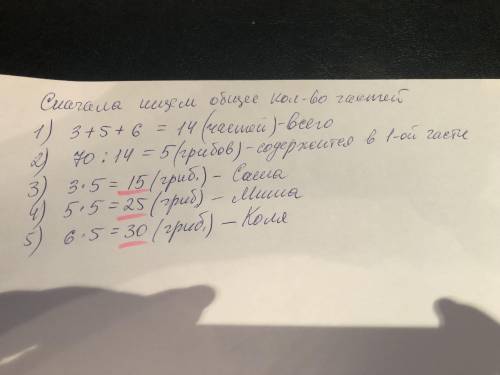 Сначала ищем общее кол-во частей
1) 3+5+6 = 14 (частей)-всего
2) 70 : 14 = 5 (грибов) - содержится в 1-ой части
3) 3·5 = 15 (гриб.) - Саша
4) 5·5 = 25 (гриб) - Миша
5) 6·5 = 30 (гриб.) - Коля